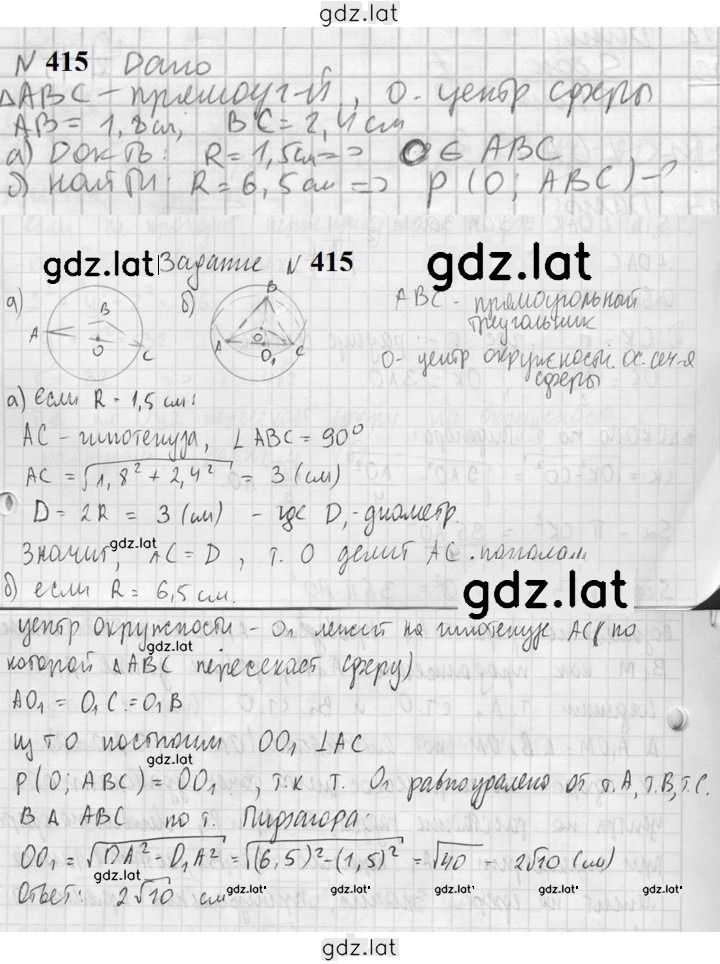 gdz.lat
N 415 Дано
△ABC - прямоуг-й, O - центр сферы
AB = 1,8см; BC = 2,4см
а) Докть: R = 1,5см => O ∈ ABC
б) Найти: R = 6,5см => ρ(O; ABC) - ?
gdz.lat Задание N 415 gdz.lat
а) б) ABC - прямоугольный
треугольник
A B C O
A B C O O₁
O - центр окружности ос. сеч-я
сферы
а) если R = 1,5 см:
AC - гипотенуза, ∠ABC = 90°
AC = √1,8² + 2,4² = 3 (см)
D = 2R = 3 (см) - где D, - диаметр.
gdz.lat
Значит, AC = D, т. O делит AC пополам
б) если R = 6,5 см. gdz.lat
центр окружности - O₁ лежит на гипотенузе AC (по
которой △ABC пересекает сферу)
AO₁ = O₁C = O₁B
из т.O построим OO₁ ⊥ AC
gdz.lat
ρ(O; ABC) = OO₁, т.к т. O₁ равноудалено от т.A, т.B, т.C.
В △ ABC по т. Пифагора
OO₁ = √OA² - O₁A² = √(6,5)² - (1,5)² = √40 = 2√10 (см)
gdz.lat
Ответ: 2√10 см gdz.lat gdz.lat gdz.lat gdz.lat gdz.lat
gdz.lat